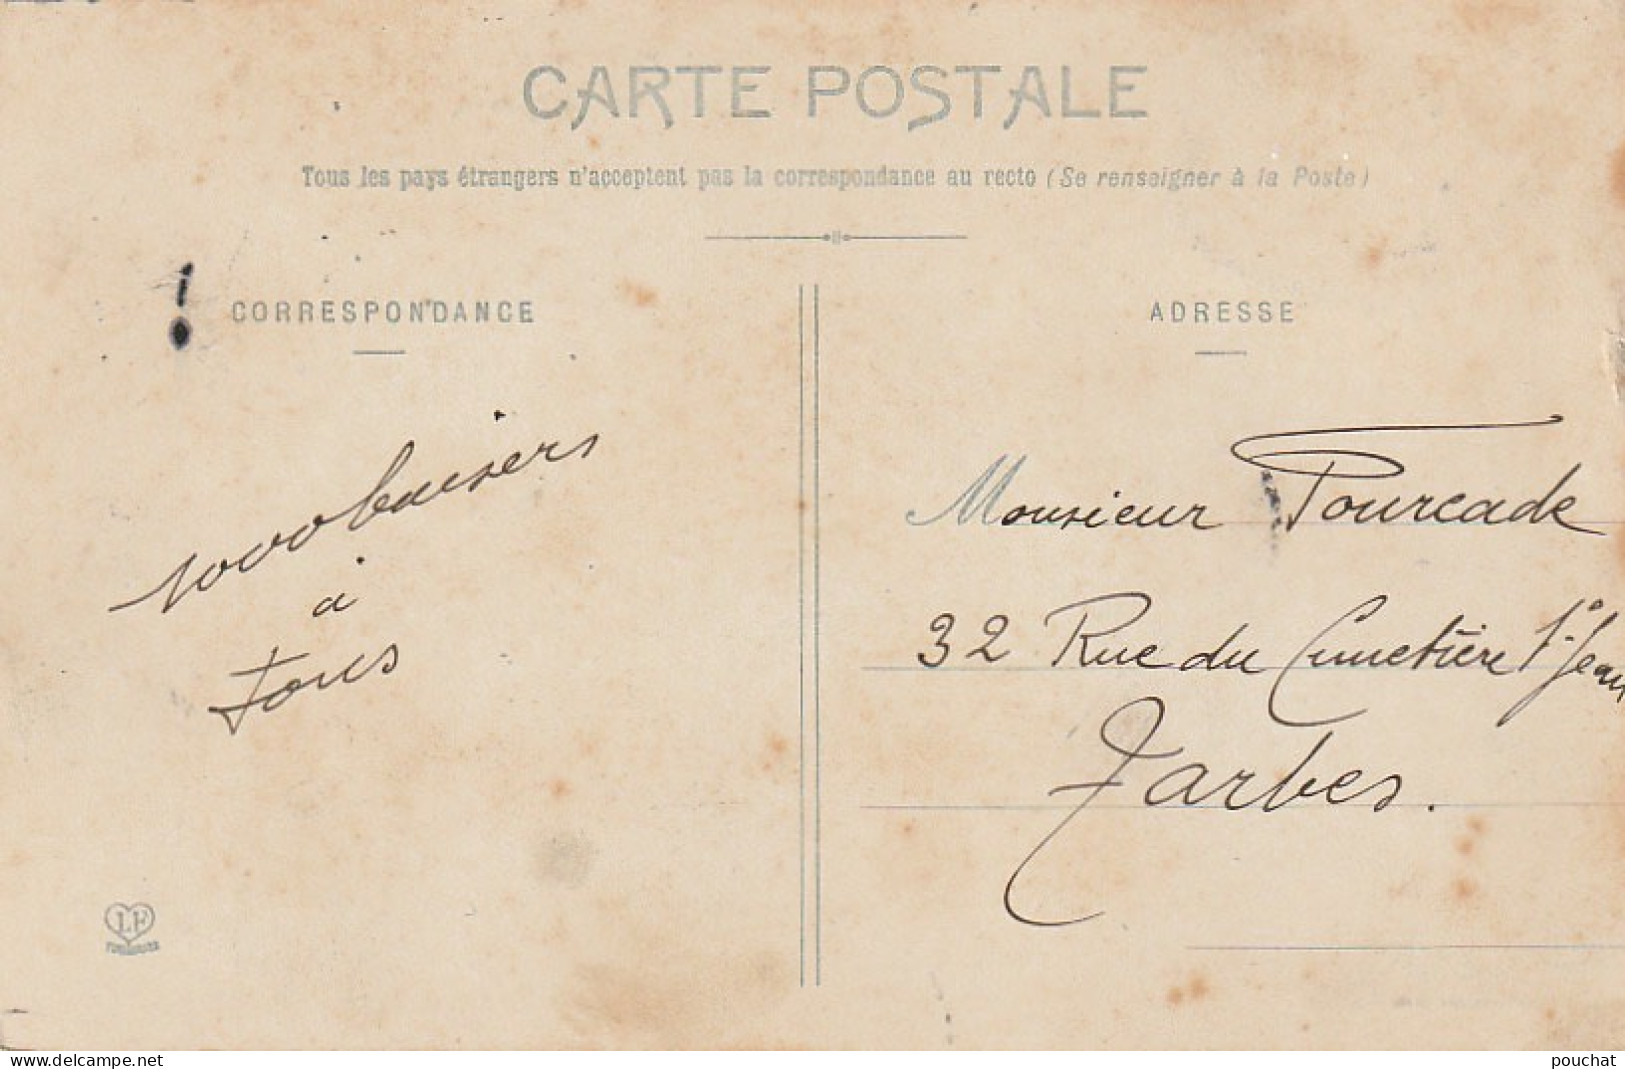 CARTE POSTALE
Tous les pays étrangers n'acceptent pas la correspondance au recto (Se renseigner à la Poste)
CORRESPONDANCE
ADRESSE
1000 baisers
à
Tous
Monsieur Fourcade
32 Rue du Cimetière St-Jean
Tarbes.
LF
www.delcampe.net
pouchat